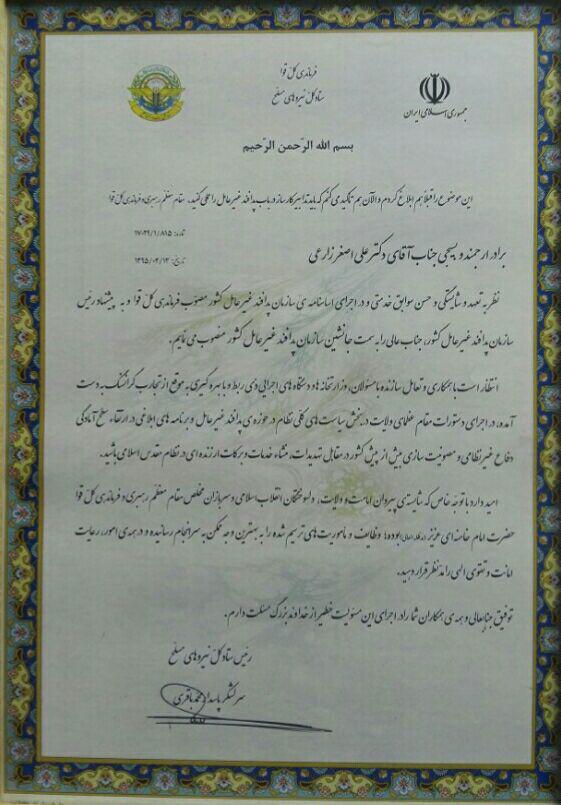 فرماندهی کل قوا
ستاد کل نیروهای مسلح
جمهوری اسلامی ایران
بسم الله الرّحمن الرّحیم
این موضوع را قبلاً هم ابلاغ کردم و الآن هم تأکید می کنم که باید تدابیر کارساز در باب پدافند غیرعامل را عملی کنید. مقام معظّم رهبری و فرماندهی کل قوا
شماره: ۱۷۰۲۹/۱/۸۱۵
تاریخ: ۱۳۹۵/۰۴/۱۲
برادر ارجمند و بسیجی جناب آقای دکتر علی اصغر زارعی
نظر به تعهد و شایستگی و حسن سوابق خدمتی و در اجرای اساسنامه ی سازمان پدافند غیرعامل کشور مصوّب فرماندهی کل قوا و به پیشنهاد رئیس
سازمان پدافند غیرعامل کشور، جناب عالی را به سمت جانشین سازمان پدافند غیرعامل کشور منصوب می نمایم.
انتظار است با همکاری و تعامل سازنده با مسئولان، وزارتخانه ها و دستگاه های اجرایی ذی ربط و با بهره گیری به موقع از تجارب گرانسنگ به دست
آمده، در اجرای دستورات مقام عظمای ولایت در بخش سیاست های کلی نظام در حوزه ی پدافند غیرعامل و برنامه های ابلاغی در ارتقاء سطح آمادگی
دفاع غیرنظامی و مصونیت سازی بیش از پیش کشور در مقابل تهدیدات، منشاء خدمات و برکات ارزنده ای در نظام مقدس اسلامی باشید.
امید دارد با توجّه خاص که شایسته ی پیروان امامت و ولایت، دلسوختگان انقلاب اسلامی و سربازان مخلص مقام معظّم رهبری و فرماندهی کل قوا
حضرت امام خامنه ای عزیز بوده؛ وظایف و مأموریت های ترسیم شده را به بهترین وجه ممکن به سرانجام رسانیده و در همه ی امور، رعایت
امانت و تقوی الهی را مدّنظر قرار دهید.
توفیق جنابعالی و همه ی همکاران شما را در اجرای این مسئولیت خطیر از خداوند بزرگ مسئلت دارم.
رئیس ستاد کل نیروهای مسلّح
سرلشکر پاسدار محمد باقری